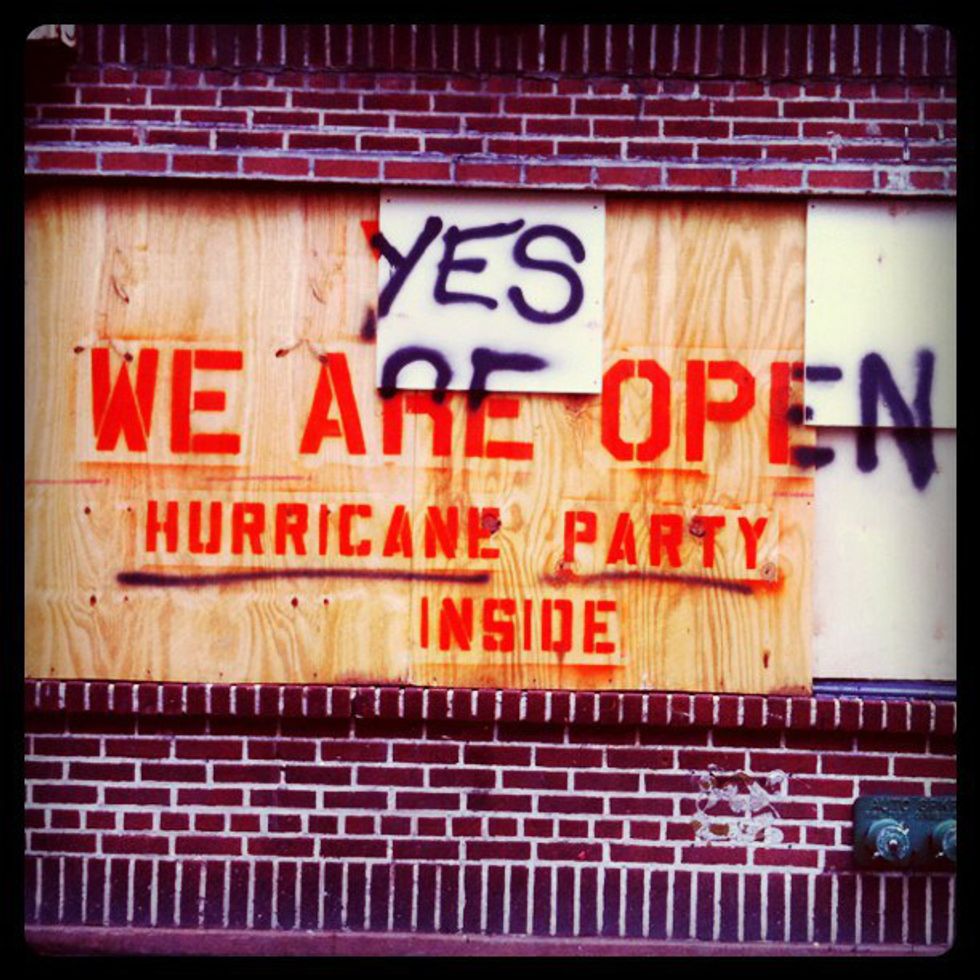 YES
WE ARE OPEN
HURRICANE PARTY
INSIDE
AUTO